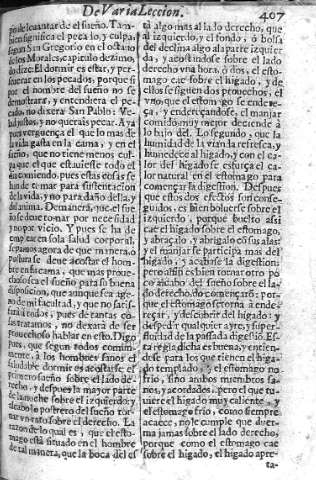 De Varia Leccion.
407
no se leuantar de el sueño. Tam-
bien significa el pecado, y culpa,
segun San Gregorio en el octauo
de los Morales, capitulo dezimo,
do dize: El dormir es estar, y per-
seuerar en los pecados, porque si
por el nombre del sueño no se
demostrara, y entendiera el pe-
cado, no dixera San Pablo: Ve-
lad justos, y no querais pecar. A ya
pues verguença el que lo mas de
la vida gasta en la cama, y en el
sueño, que no tiene menos cul-
pa que el que estuuiesse todo el
dia comiendo, pues estas cosas se
han de tomar para sustentacion
de la vida, y no para daño della, y
del anima. De manera, que el sue
ño se deue tomar por necesidad
y no por vicio. Y pues se ha de
emplear en sola salud corporal,
sepamos agora de que manera, o
postura se deue acostar el hom-
bre en la cama, que mas proue-
chosa sea el sueño para su buena
disposicion, que aunque sea age-
no de mi facultad, y que no satis-
fará à todos, pues de tantas co-
sas tratamos, no dexará de ser
prouechoso hablar en esto. Digo
pues, que segun todos comun-
mente, à los hombres sanos el
saludable dormir es acostarse el
primero sueño sobre el lado de-
recho, y despues la mayor parte
de la noche sobre el izquierdo: y
acabado lo postrero del sueño tor-
nar un rato sobre el derecho. La
razon de lo qual es, que el esto-
mago está situado en el hombre
de tal manera, que la boca del es
tá algo mas al lado derecho, que
al izquierdo, y el fondo, ò bolsa
del declina algo a la parte izquier
da, y acostandose sobre el lado
derecho vna hora, ò dos, el esto-
mago cae sobre el higado, y de
ellos se siguen dos prouechos, el
vno, que el estomago se endere-
ça, y endereçandose, el manjar
comido muy mejor deciende à
lo baxo del. Lo segundo, que la
humidad de la vianda refresca, y
humedece al higado, y con el ca-
lor del higado se esfuerça el ca-
lor natural en el estomago para
començar la digestion. Despues
que estos dos efectos son conse-
guidos, es bien boluerse sobre el
izquierdo, porque buelto assi
cae el higado sobre el estomago,
y abraçalo, y abrigalo có sus alas:
y el manjar se participa mas del
higado, y acabase la digestion:
pero assi es bien tornar otro po
co acabado del sueño sobre el la-
do derecho, do començò: por-
que el estomago se torna à ende-
reçar, y descubrir del higado: y
despedir qualquier ayre, y super-
fluidad de la passada digestió. Es-
ta regla dicha es buena, y entien-
dese para los que tienen el higa-
do templado, y el estomago no
frio, sino ambos miembros sa-
nos, y acordados, pero el que tu-
uiere el higado muy caliente, y
el estomago frio, como siempre
acaece, no le cumple que duer-
ma jamas sobre el lado derecho,
porque como el estomago cae
sobre el higado, el higado apre-
ta-